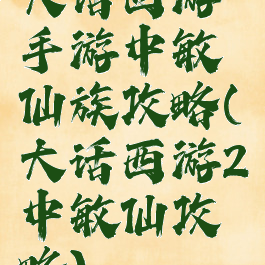 大话西游
手游中敏
仙族攻略(
大话西游2
中敏仙攻
略)